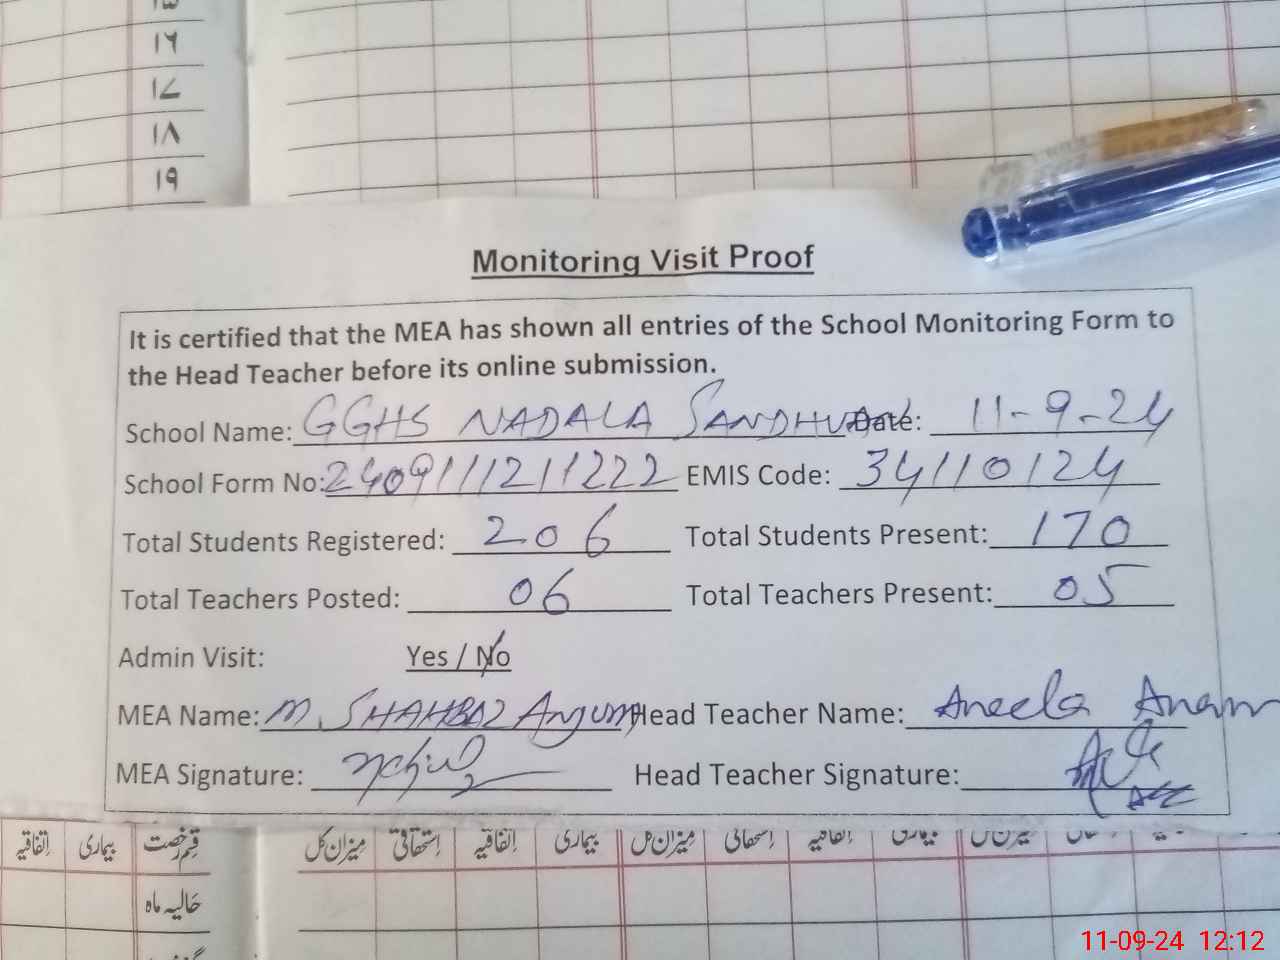 ۱۶
۱۷
۱۸
۱۹
Monitoring Visit Proof
It is certified that the MEA has shown all entries of the School Monitoring Form to
the Head Teacher before its online submission.
School Name: GGHS NADALA SANDHUAN Date: 11-9-24
School Form No: 2409111211222 EMIS Code: 34110124
Total Students Registered: 206 Total Students Present: 170
Total Teachers Posted: 06 Total Teachers Present: 05
Admin Visit: Yes / No
MEA Name: M. SHAHBAZ Anjum Head Teacher Name: Aneela Anam
MEA Signature: Head Teacher Signature:
قسم رخصت بیماری اتفاقیہ میزان کل استحقاقی اتفاقیہ بیماری میزان کل
حالیہ ماہ
11-09-24 12:12